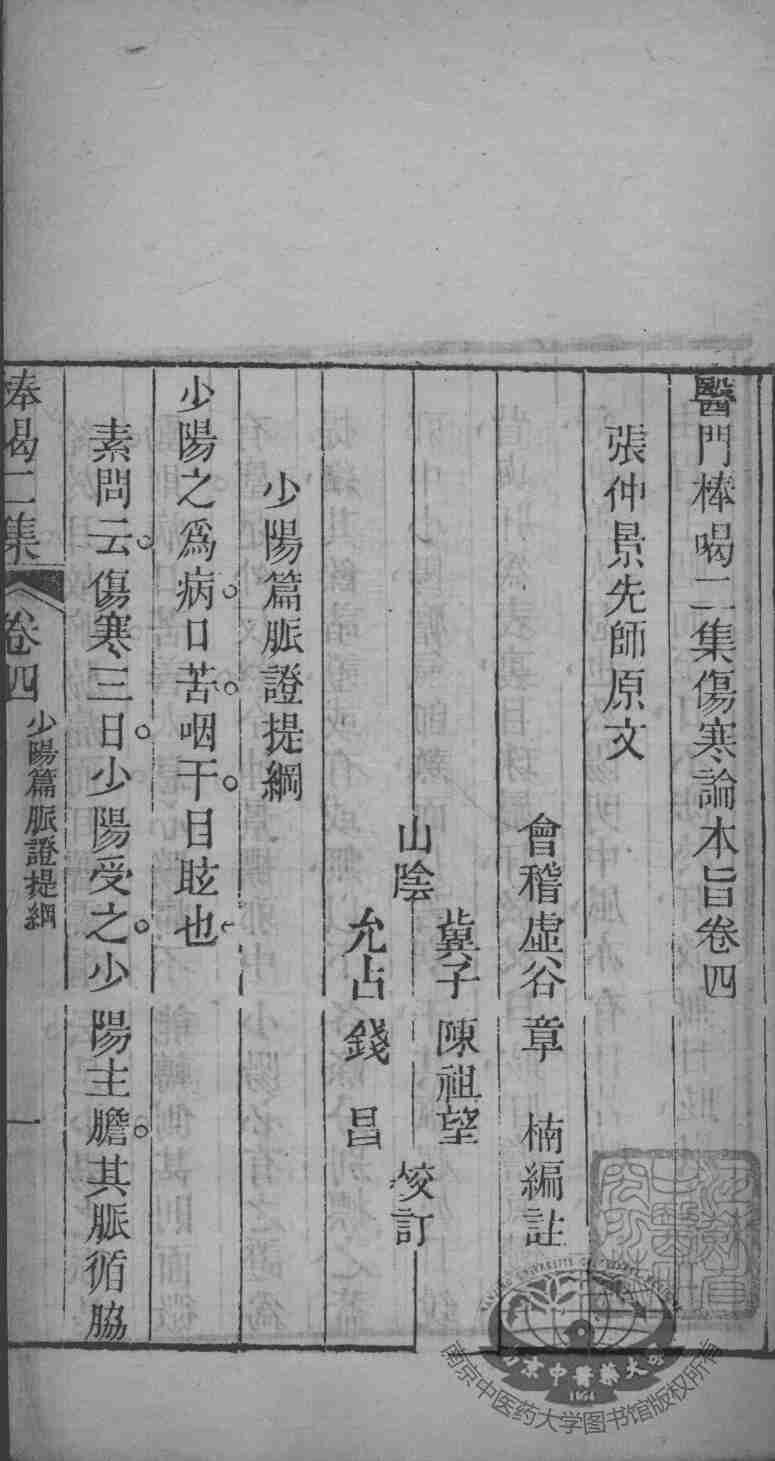 醫門棒喝二集傷寒論本旨卷四
張仲景先師原文
會稽虛谷章 楠編註
山陰
蓂子陳祖望
允占錢 昌
校訂
少陽篇脈證提綱
少陽之爲病。口苦。咽干。目眩也。
素問云。傷寒三日。少陽受之。少陽主膽。其脈循脇
棒喝二集
卷四
少陽篇脈證提綱
一
南京中醫藥大學
1954
南京中医药大学图书馆版权所有